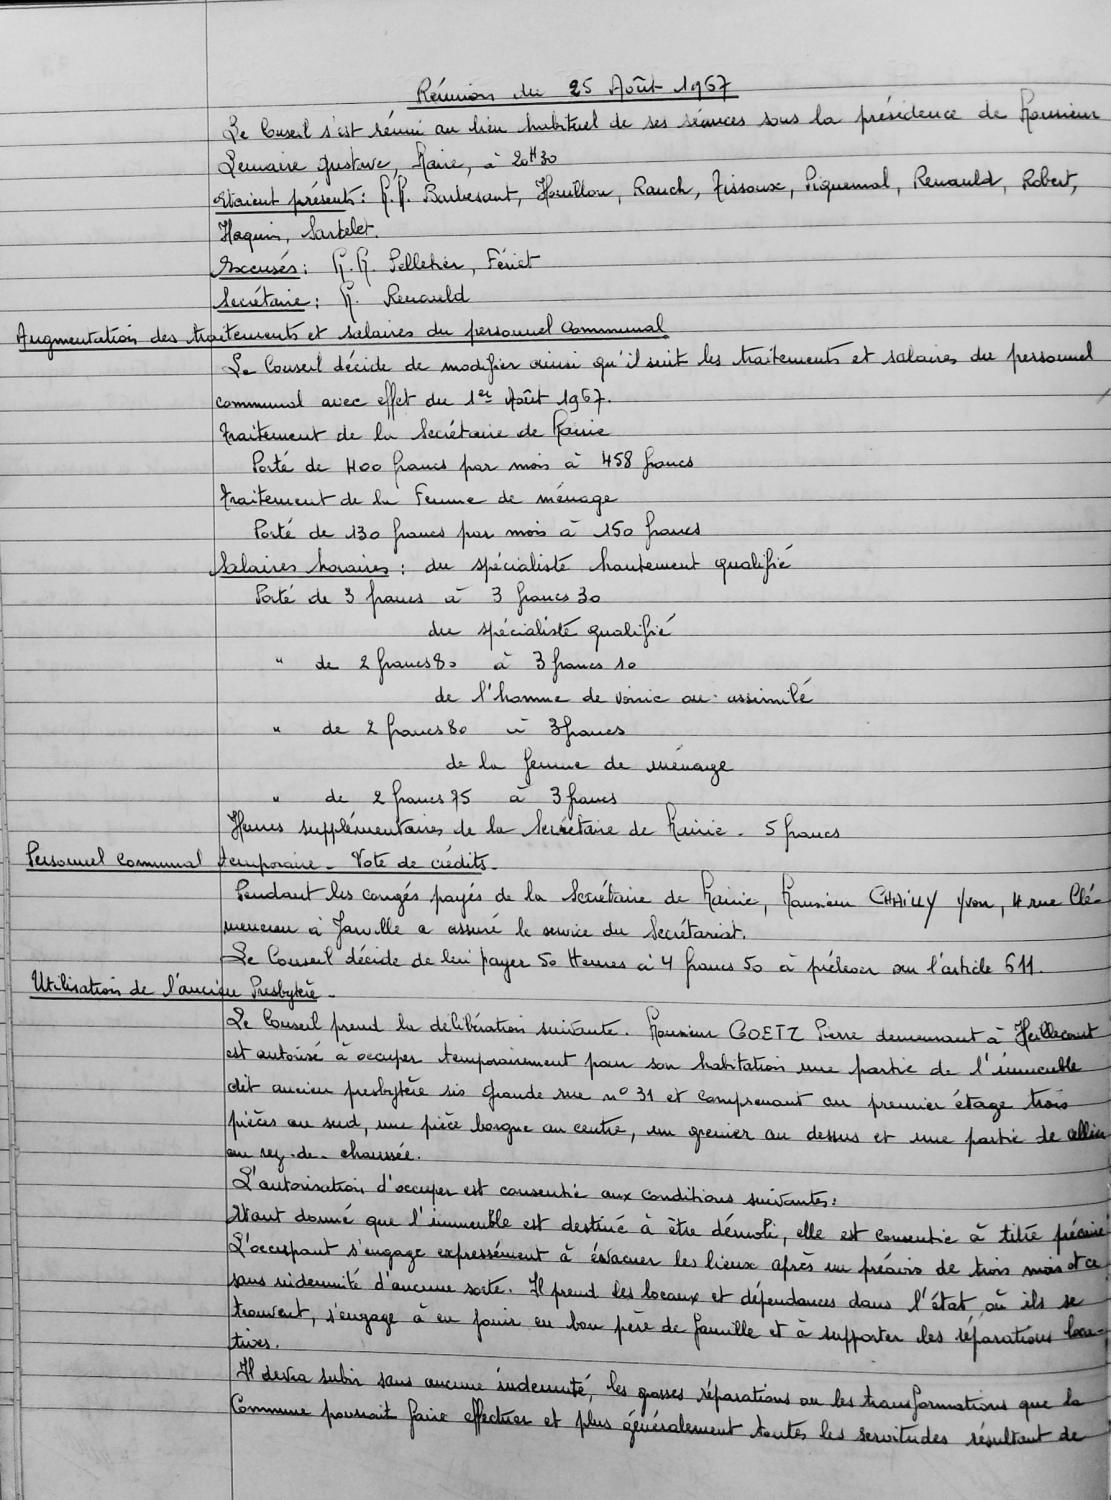 Réunion du 25 Août 1967
Le Conseil s'est réuni au lieu habituel de ses séances sous la présidence de Monsieur
Lemaire Gustave, Maire, à 20H30
Etaient présents : M.M. Barbesant, Houillon, Rauch, Tissoux, Piquemal, Renauld, Robert,
Haquin, Sartelet.
Excusés : M.M. Pelletier, Fériet
Secrétaire : M. Renauld
Augmentation des traitements et salaires du personnel Communal
Le Conseil décide de modifier ainsi qu'il suit les traitements et salaires du personnel
communal avec effet du 1er Août 1967.
Traitement de la Secrétaire de Mairie
Porté de 400 francs par mois à 458 francs
Traitement de la Femme de ménage
Porté de 130 francs par mois à 150 francs
Salaires horaires : du spécialiste hautement qualifié
Porté de 3 francs à 3 francs 30
du spécialiste qualifié
" de 2 francs 80 à 3 francs 10
de l'homme de voirie ou assimilé
" de 2 francs 80 à 3 francs
de la femme de ménage
" de 2 francs 75 à 3 francs
Heures supplémentaires de la Secrétaire de Mairie - 5 francs
Personnel Communal temporaire - Vote de crédits -
Pendant les congés payés de la Secrétaire de Mairie, Monsieur CHAILLY Yvon, 4 rue Clé-
menceau à Jarville a assuré le service du Secrétariat.
Le Conseil décide de lui payer 50 Heures à 4 francs 50 à prélever sur l'article 611.
Utilisation de l'ancien Presbytère -
Le Conseil prend la délibération suivante. Monsieur GOETZ Pierre demeurant à Heillecourt
est autorisé à occuper temporairement pour son habitation une partie de l'immeuble
dit ancien presbytère sis Grande rue n° 31 et comprenant au premier étage trois
pièces au sud, une pièce borgne au centre, un grenier au dessus et une partie de cellier
au rez-de-chaussée.
L'autorisation d'occuper est consentie aux conditions suivantes :
Etant donné que l'immeuble est destiné à être démoli, elle est consentie à titre précaire
L'occupant s'engage expressément à évacuer les lieux après un préavis de trois mois et ce
sans indemnité d'aucune sorte. Il prend les locaux et dépendances dans l'état où ils se
trouvent, s'engage à en jouir en bon père de famille et à supporter les réparations loca-
tives.
Il devra subir sans aucune indemnité, les grosses réparations ou les transformations que la
Commune pourrait faire effectuer et plus généralement toutes les servitudes résultant de